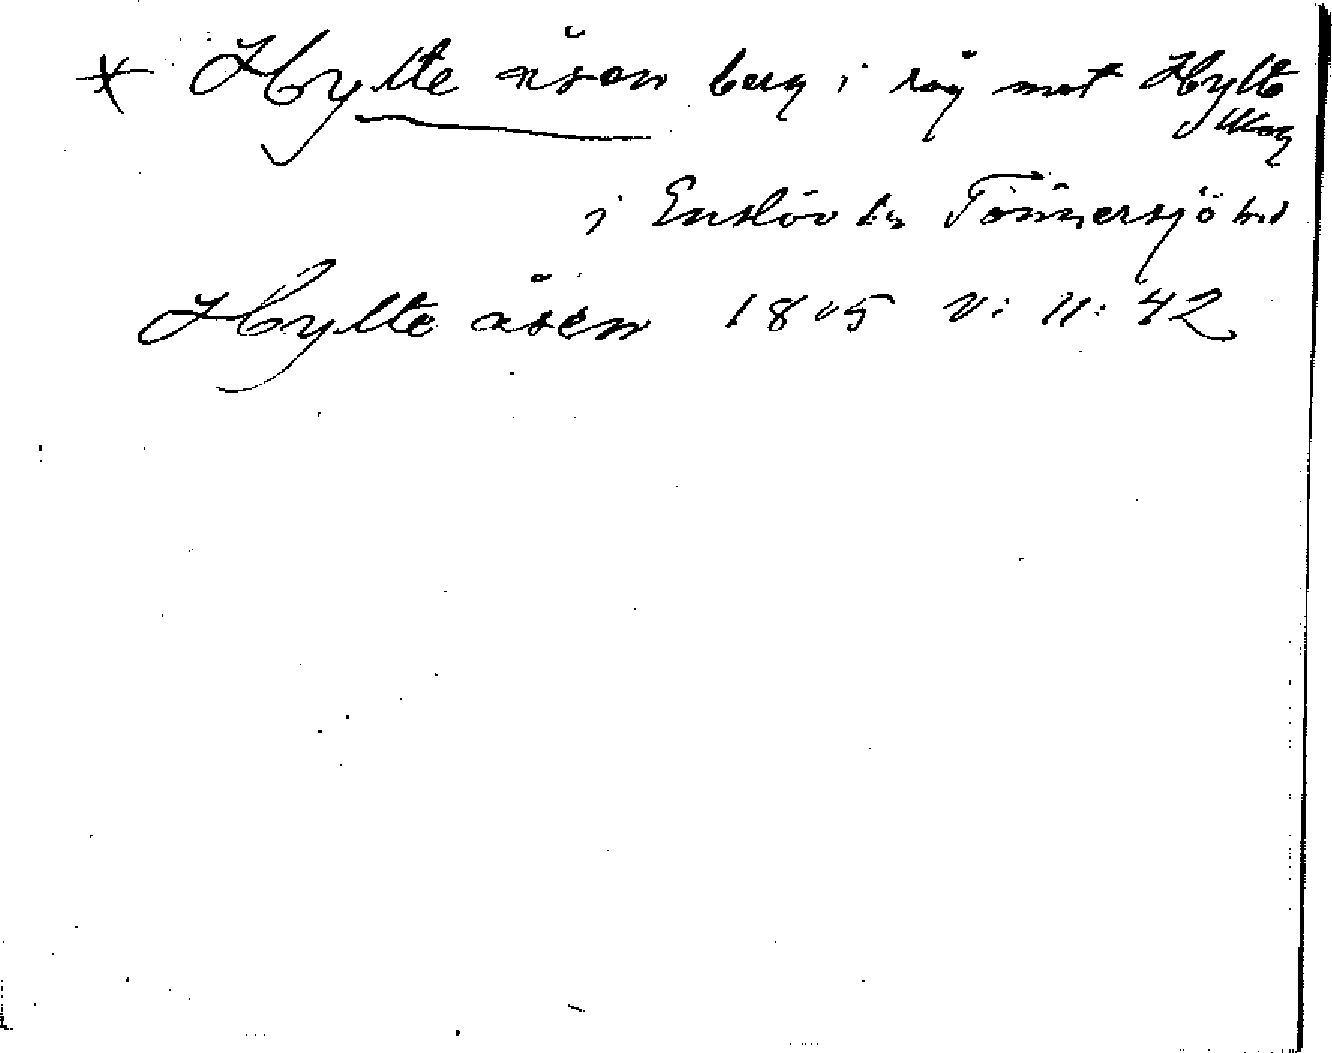 * Hylte åsen berg i råg mot Hylte
skog
i Enslöv sn Tönnersjö hd
Hylte åsen 1805 V: 11: 42